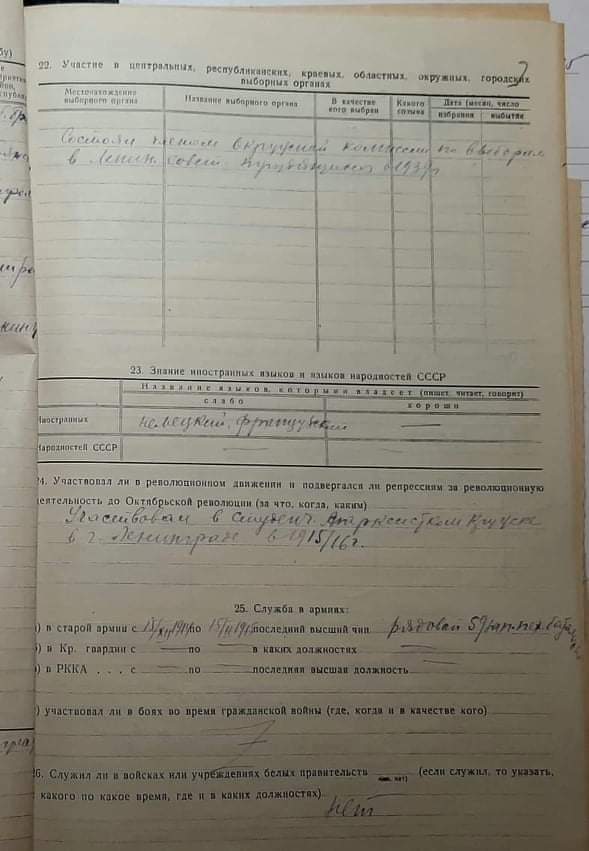 22. Участие в центральных, республиканских, краевых, областных, окружных, городских
выборных органах
Местонахождение выборного органа
Название выборного органа
В качестве кого выбран
Какого созыва
Дата (месяц, число
избрания
выбытие
Состоял членом Окружной комиссии по выборам
в Ленин. совет в 1939г
23. Знание иностранных языков и языков народностей СССР
Название языков, которыми владеет (пишет, читает, говорит)
слабо
хорошо
Иностранных
немецкий, французский
—
Народностей СССР
—
—
24. Участвовал ли в революционном движении и подвергался ли репрессиям за революционную
деятельность до Октябрьской революции (за что, когда, каким)
Участвовал в студенч. марксистком кружке
в г. Ленинграде в 1915/16г.
25. Служба в армиях:
) в старой армии с по последний высший чин рядовой
) в Кр. гвардии с — по — в каких должностях —
) в РККА . . . с — по — последняя высшая должность —
) участвовал ли в боях во время гражданской войны (где, когда и в качестве кого)
26. Служил ли в войсках или учреждениях белых правительств (если служил, то указать,
какого по какое время, где и в каких должностях)
нет